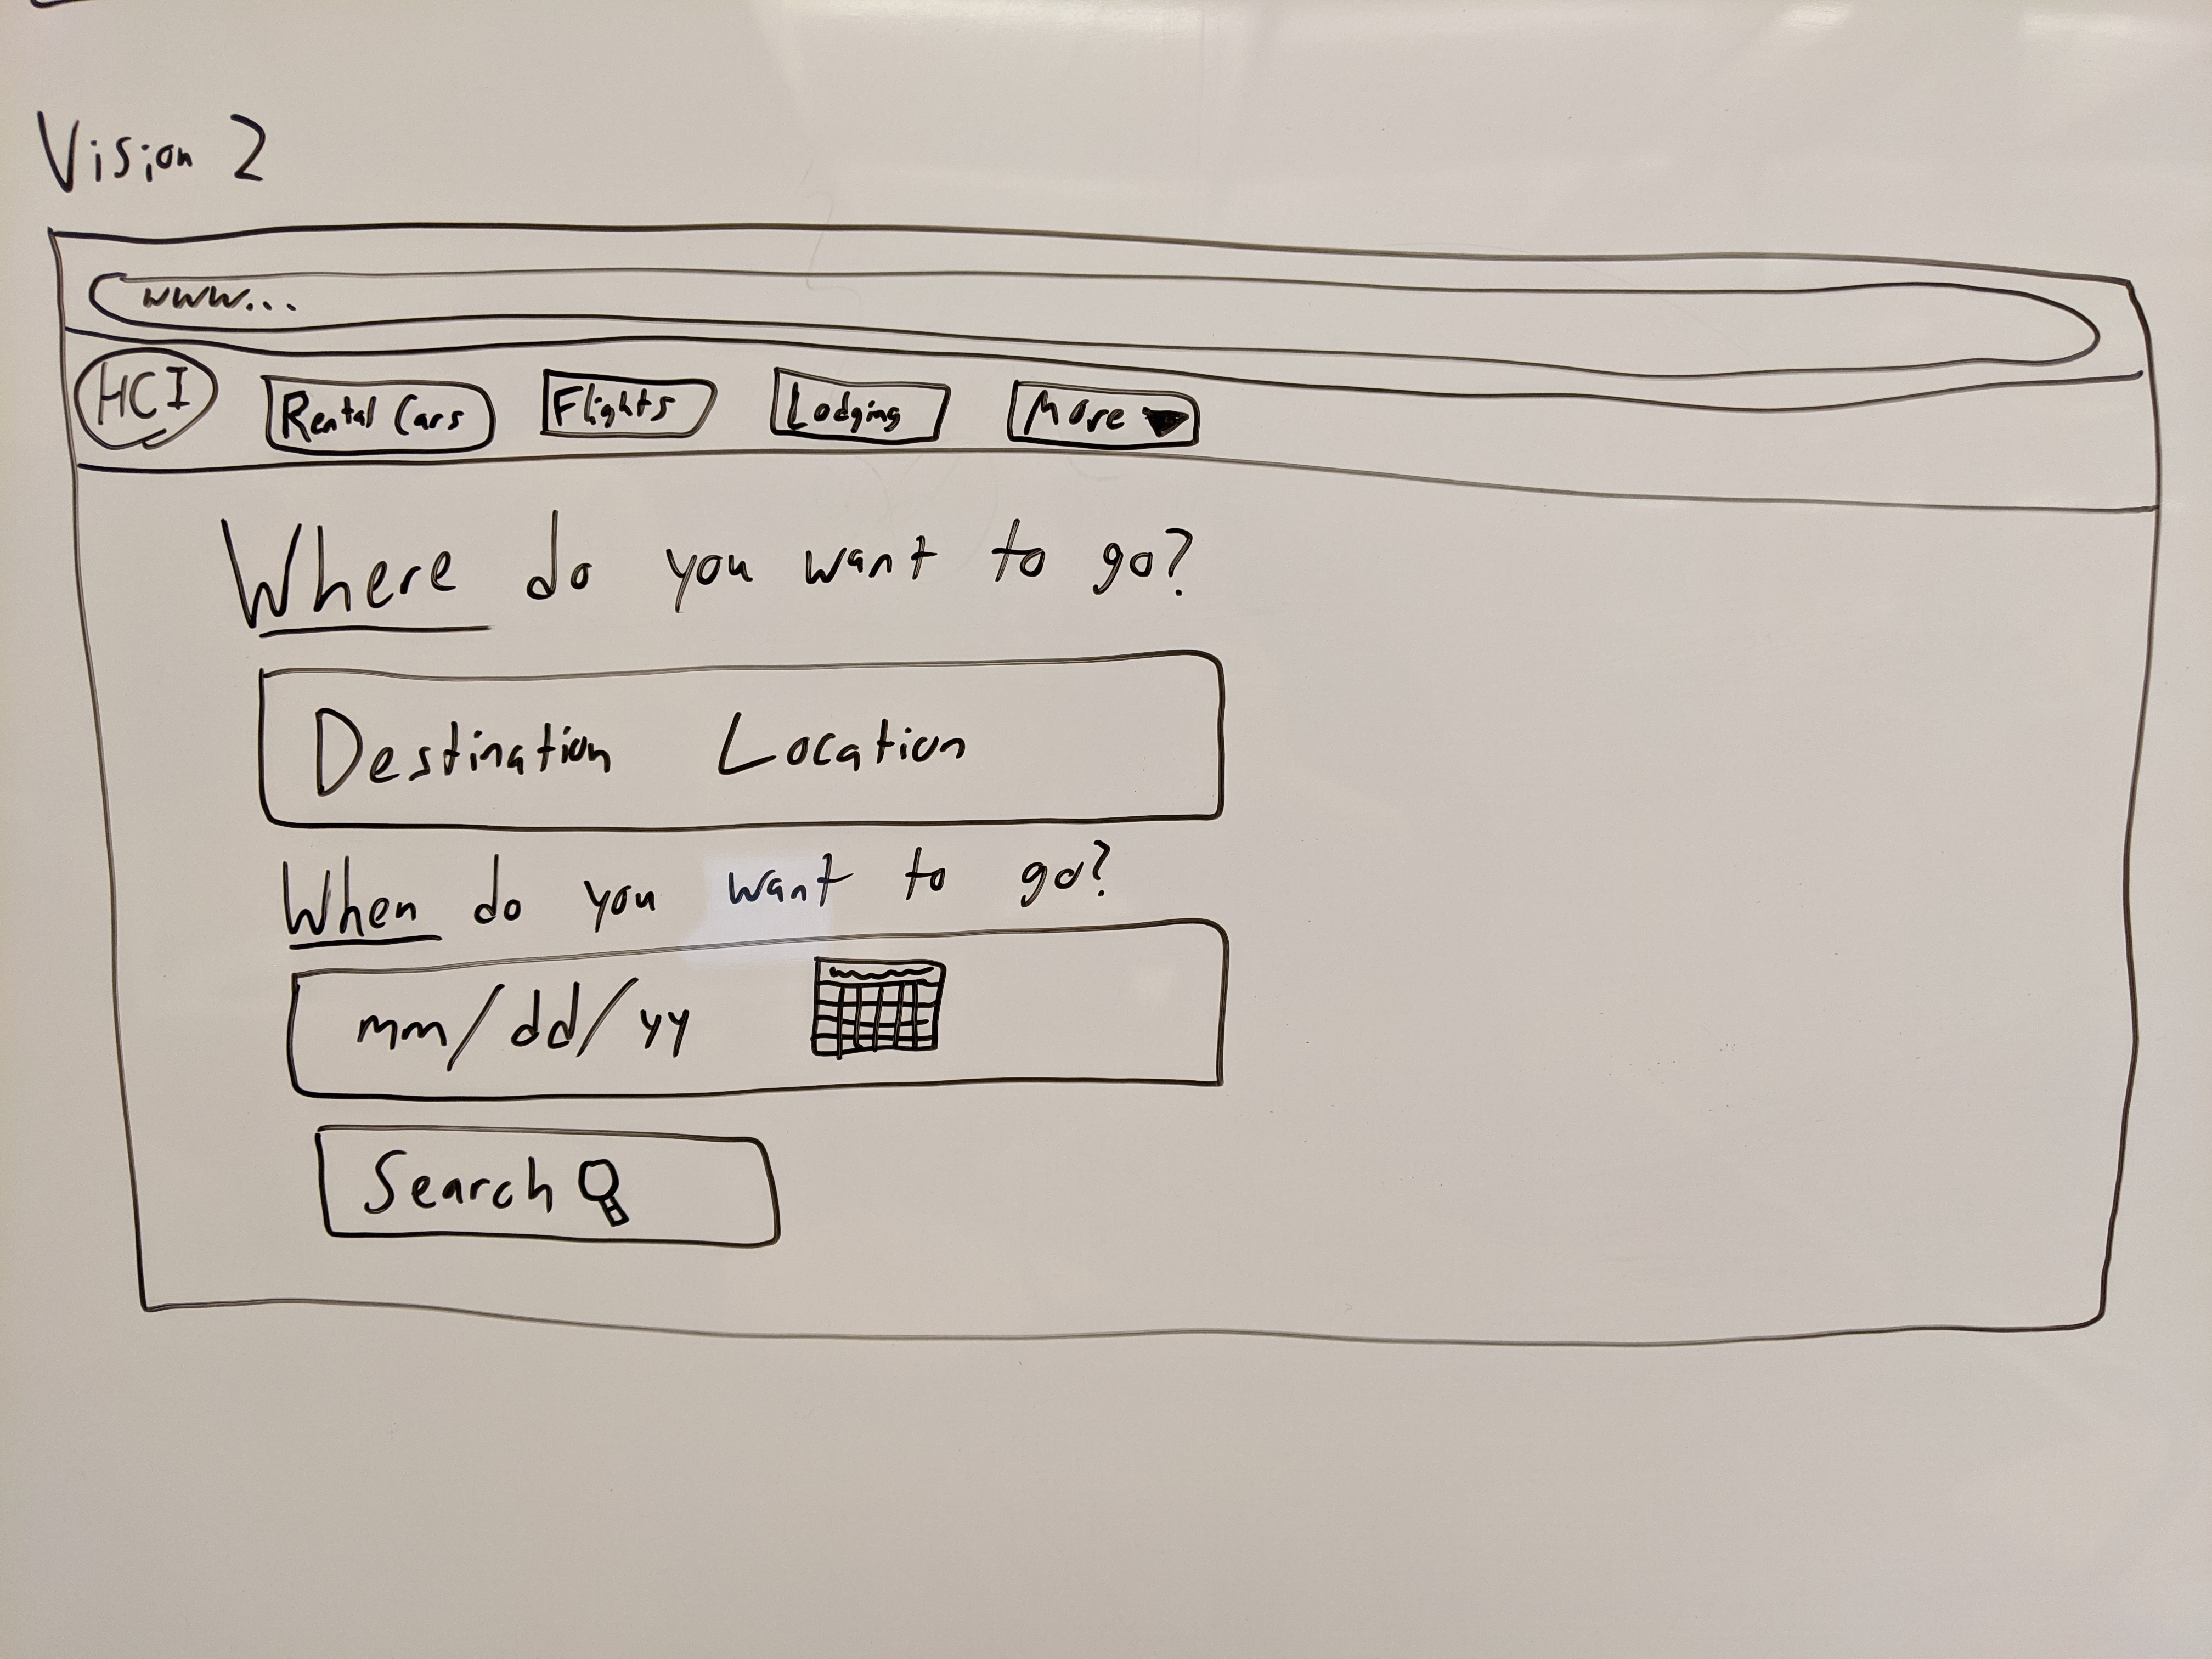 Vision 2
www...
HCI Rental Cars Flights Lodging More
Where do you want to go?
Destination Location
When do you want to go?
mm/dd/yy
Search